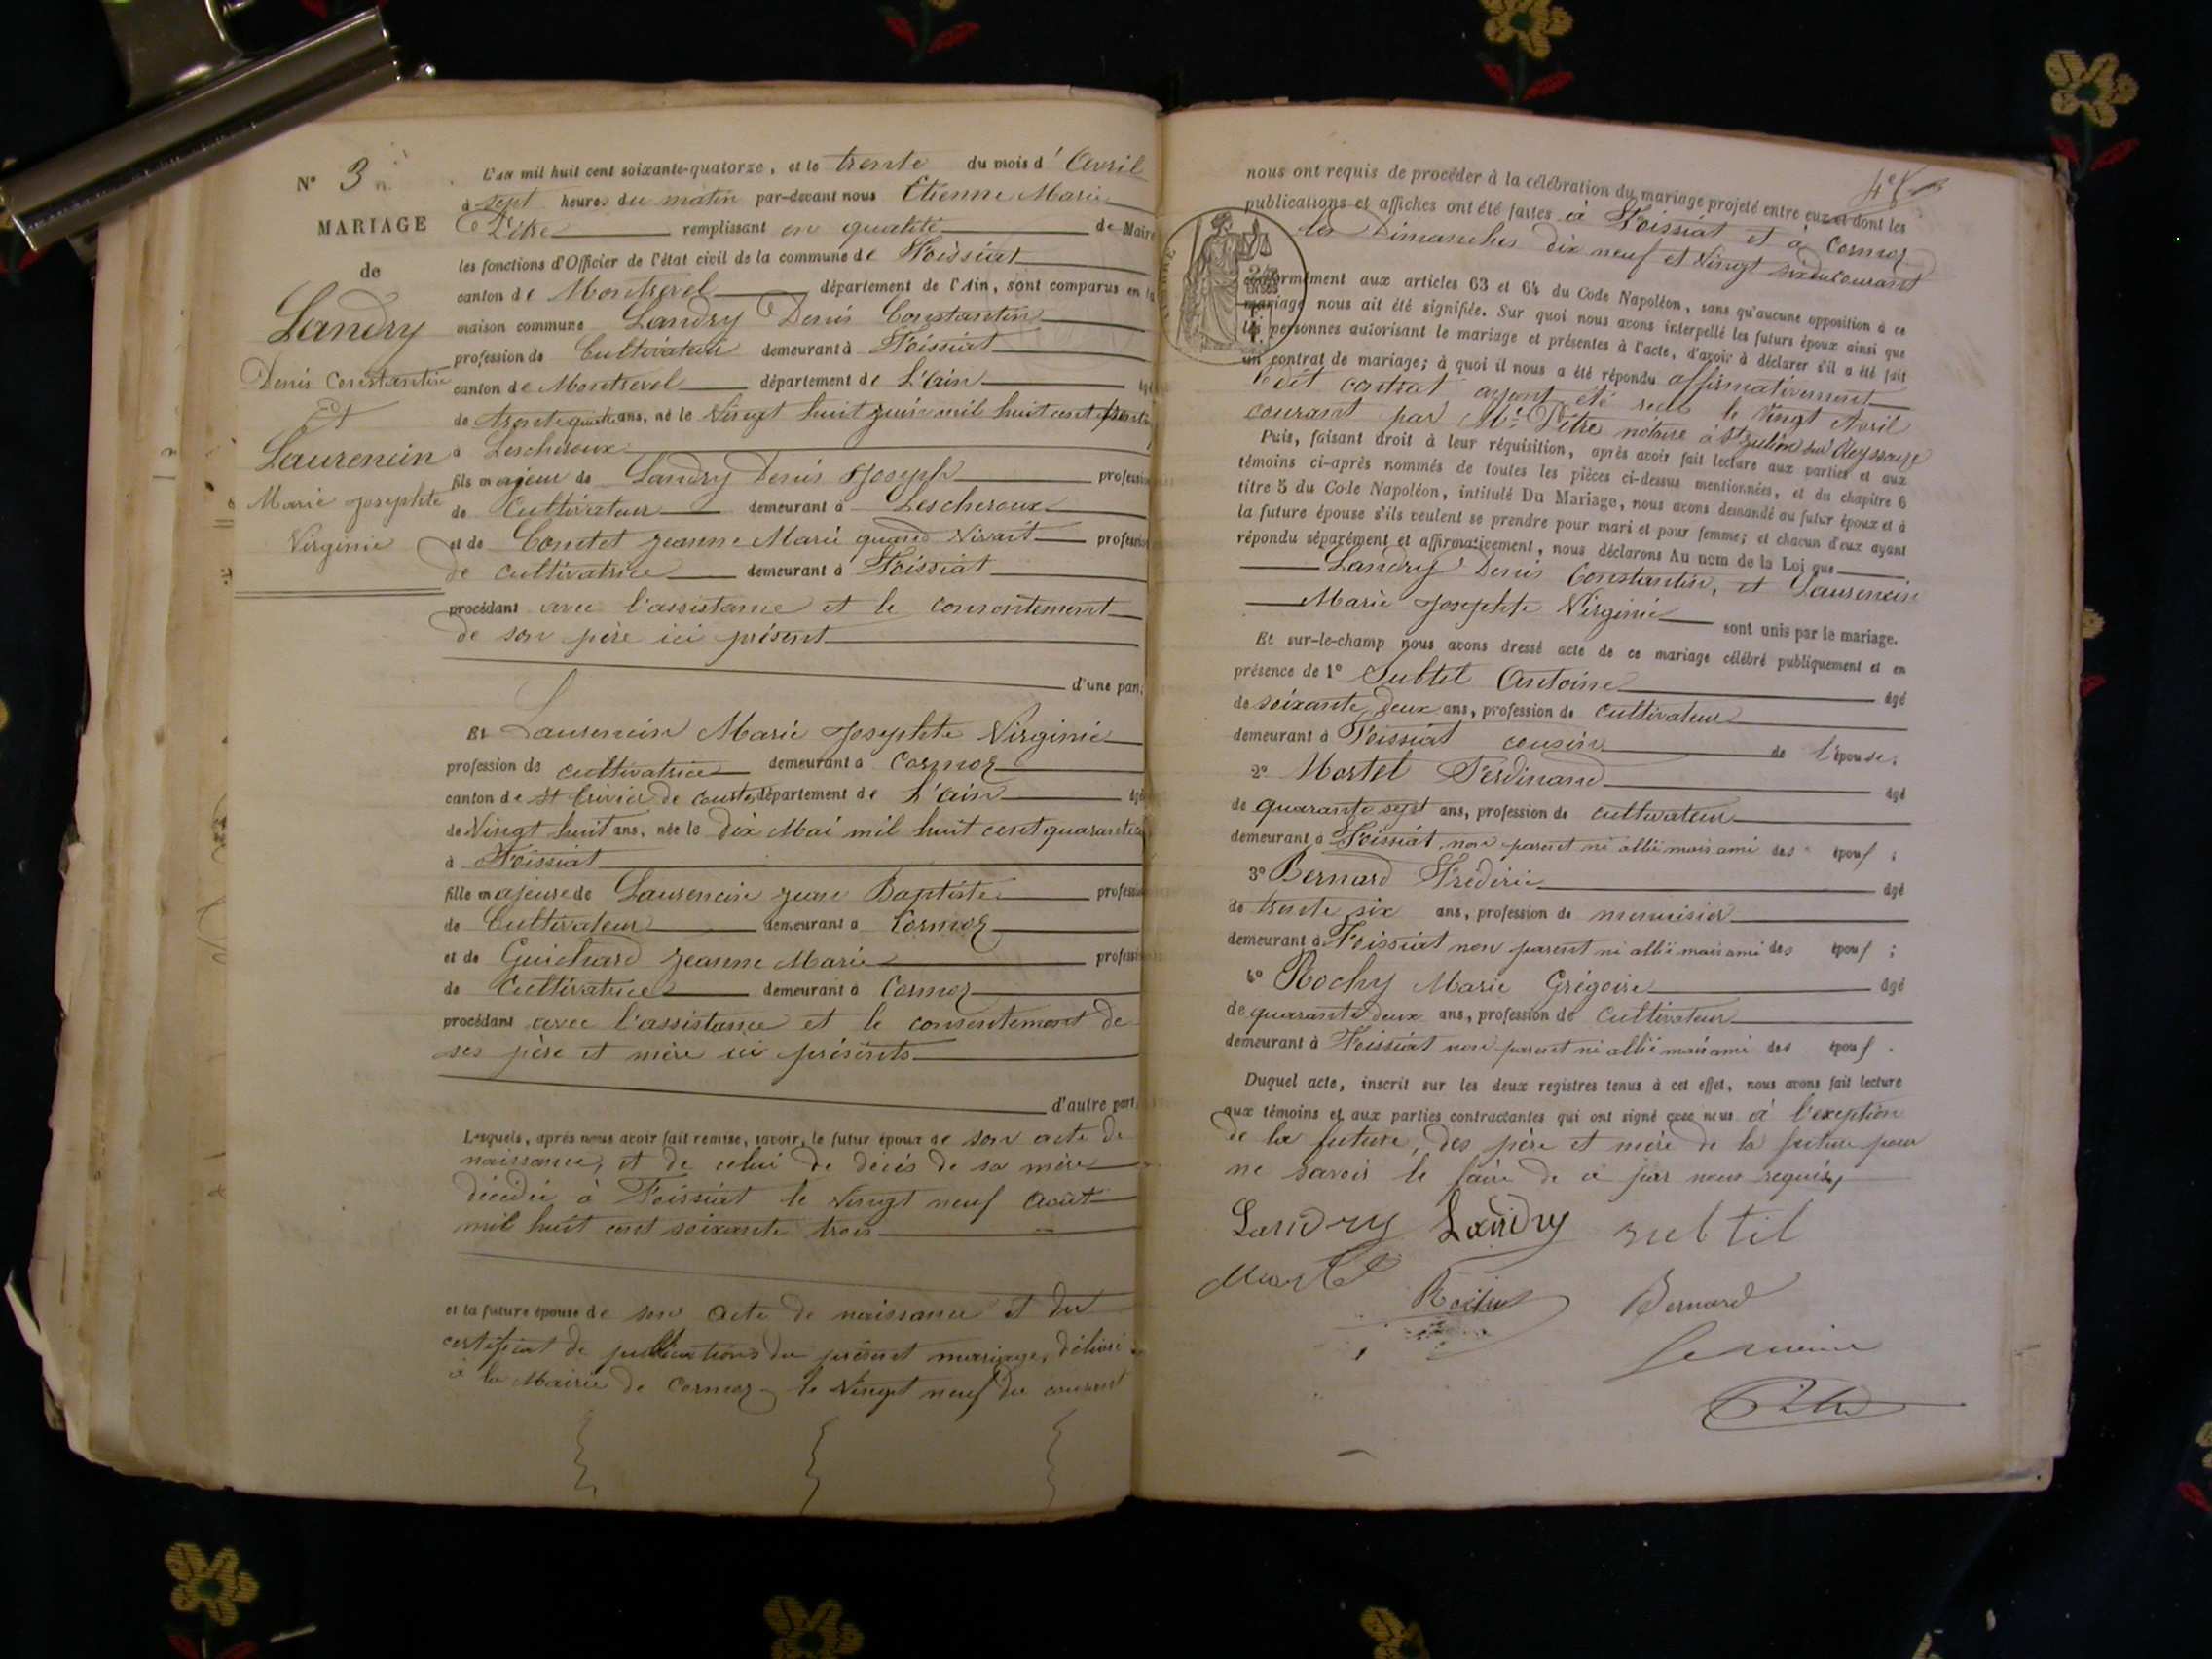 N° 3
MARIAGE
de
Landry
Denis Constantin
et
Laurencin
Marie Josephte
Virginie
L'an mil huit cent soixante-quatorze, et le trente du mois d'Avril
à sept heures du matin par-devant nous Etienne Marie
Pitre remplissant en qualité de Maire
les fonctions d'Officier de l'état civil de la commune de Foissiat
canton de Montrevel département de l'Ain, sont comparus en la
maison commune Landry Denis Constantin
profession de Cultivateur demeurant à Foissiat
canton de Montrevel département de L'ain âgé
de trente quatre ans, né le Vingt huit juin mil huit cent
à Lescheroux
fils majeur de Landry Denis Joseph profession
de Cultivateur demeurant à Lescheroux
et de Comtet Jeanne Marie quand vivait profession
de cultivatrice demeurant à Foissiat
procédant avec l'assistance et le consentement
de son père ici présent
d'une part,
Et Laurencin Marie Josephte Virginie
profession de cultivatrice demeurant à Cormoz
canton de St Trivier de Courtes département de L'ain âgé
de Vingt huit ans, née le dix Mai mil huit cent quarante
à Foissiat
fille majeure de Laurencin Jean Baptiste profession
de Cultivateur demeurant à Cormoz
et de Guichard Jeanne Marie profession
de Cultivatrice demeurant à Cormoz
procédant avec l'assistance et le consentement de
ses père et mère ici présents
d'autre part.
Lesquels, après nous avoir fait remise, savoir, le futur époux de son acte de
naissance, et de celui de décès de sa mère
décédée à Foissiat le Vingt neuf Août
mil huit cent soixante trois
et la future épouse de son acte de naissance et du
certificat de publications du présent mariage, délivré
à la Mairie de Cormoz le Vingt neuf du courant
nous ont requis de procéder à la célébration du mariage projeté entre eux et dont les
publications et affiches ont été faites à Foissiat et à Cormoz
les Dimanches dix neuf et Vingt six du courant
conformément aux articles 63 et 64 du Code Napoléon, sans qu'aucune opposition à ce
mariage nous ait été signifiée. Sur quoi nous avons interpellé les futurs époux ainsi que
les personnes autorisant le mariage et présentes à l'acte, d'avoir à déclarer s'il a été fait
un contrat de mariage; à quoi il nous a été répondu affirmativement
le dit contrat ayant été reçu le Vingt Avril
courant par Me Pitre notaire à St Julien sur Reyssouze
Puis, faisant droit à leur réquisition, après avoir fait lecture aux parties et aux
témoins ci-après nommés de toutes les pièces ci-dessus mentionnées, et du chapitre 6
titre 5 du Code Napoléon, intitulé Du Mariage, nous avons demandé au futur époux et à
la future épouse s'ils veulent se prendre pour mari et pour femme; et chacun d'eux ayant
répondu séparément et affirmativement, nous déclarons Au nom de la Loi que
Landry Denis Constantin, et Laurencin
Marie Josephte Virginie sont unis par le mariage.
Et sur-le-champ nous avons dressé acte de ce mariage célébré publiquement et en
présence de 1° Subtil Antoine âgé
de soixante deux ans, profession de cultivateur
demeurant à Foissiat cousin de l'épouse;
2° Mortel Ferdinand âgé
de quarante sept ans, profession de cultivateur
demeurant à Foissiat non parent ni allié mais ami des époux;
3° Bernard Frédéric âgé
de trente six ans, profession de menuisier
demeurant à Foissiat non parent ni allié mais ami des époux;
4° Rochy Marie Grégoire âgé
de quarante deux ans, profession de cultivateur
demeurant à Foissiat non parent ni allié mais ami des époux.
Duquel acte, inscrit sur les deux registres tenus à cet effet, nous avons fait lecture
aux témoins et aux parties contractantes qui ont signé avec nous à l'exeption
de la future, des père et mère de la future pour
ne savoir le faire de ce par nous requis,
Landry Landry subtil
Rochy Bernard
Le maire
Pitre